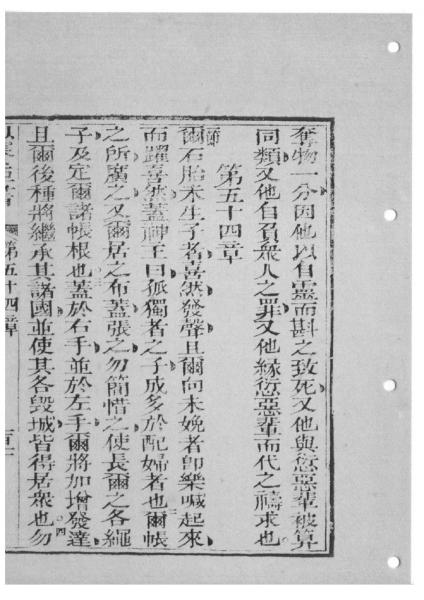 奪物一分因他以自靈而斟之致死又他與愆惡輩被算
同類又他自負衆人之罪又他緣愆惡輩而代之禱求也
第五十四章
爾石胎未生子者喜然發聲且爾向未娩者卽樂喊起來
而躍喜然蓋神王曰孤獨者之子成多於配婦者也二爾帳
之所廣之又爾居之布蓋張之勿簡惜之使長爾之各繩
子及定爾諸帳根也三蓋於右手並於左手爾將加增發達
且爾後種將繼承其諸國並使其各毀城皆得居衆也四勿
第五十四章